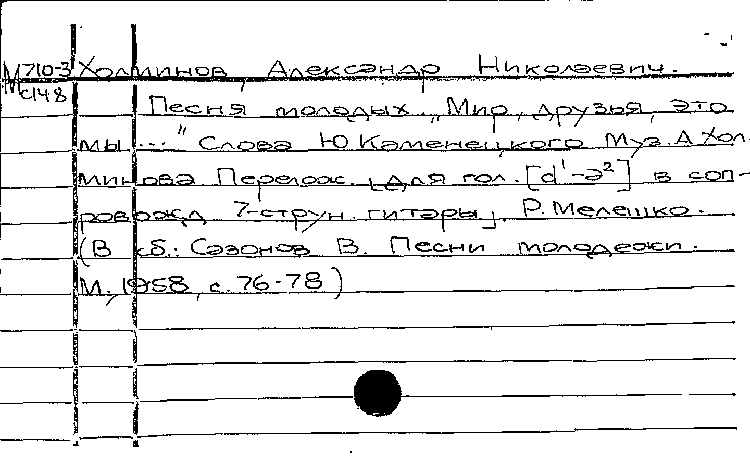 М 710-3 Холминов, Александр Николаевич.
с148
Песня молодых „Мир, друзья, это
мы ..." Слова Ю Каменецкого Муз. А Хол-
минова. Перелож. [для гол. [d¹-a²] в соп-
ровожд 7-струн. гитары]. Р. Мелешко.
(В сб.: Сазонов В. Песни молодежи.
М., 1958, с. 76-78)